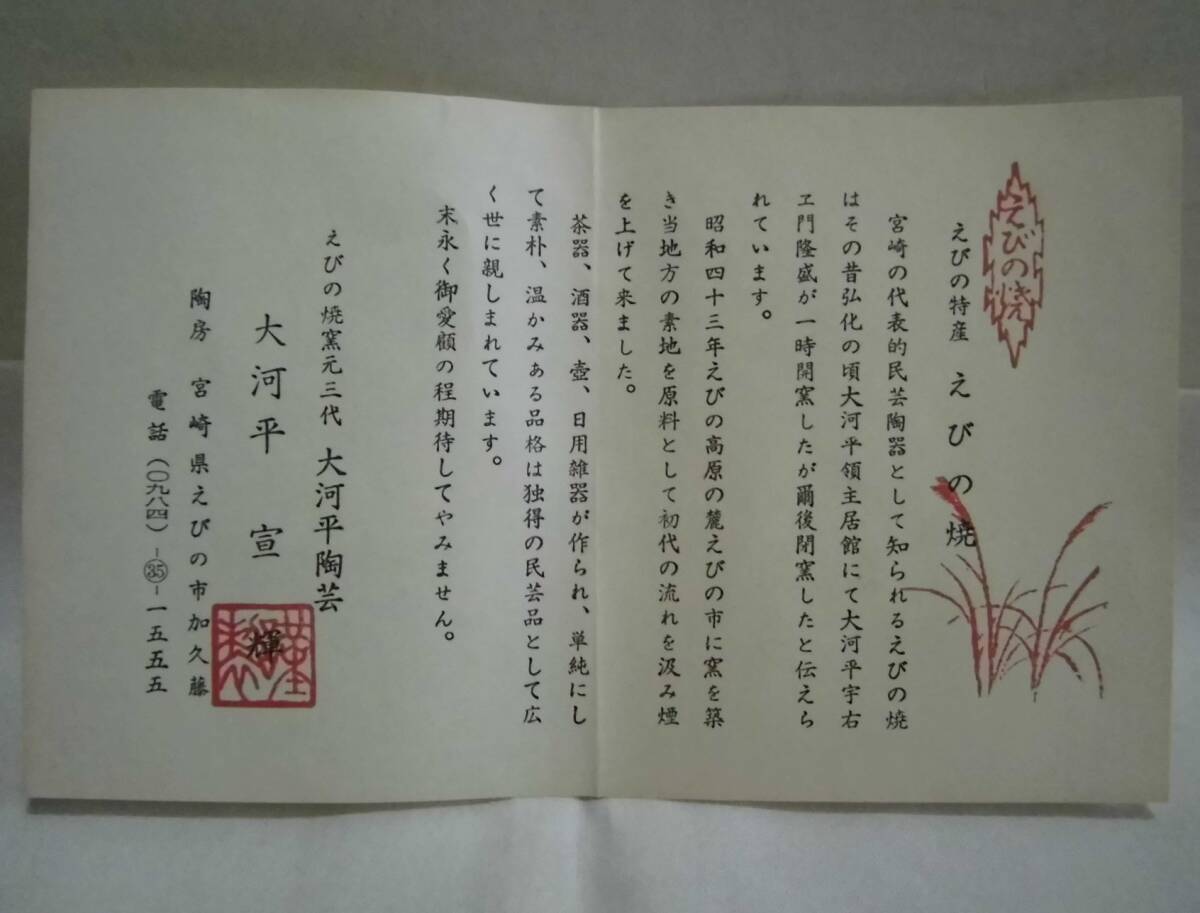 えびの焼
えびの特産 えびの焼
宮崎の代表的民芸陶器として知られるえびの焼
はその昔弘化の頃大河平領主居館にて大河平宇右
ヱ門隆盛が一時開窯したが爾後閉窯したと伝えら
れています。
昭和四十三年えびの高原の麓えびの市に窯を築
き当地方の素地を原料として初代の流れを汲み煙
を上げて来ました。
茶器、酒器、壺、日用雑器が作られ、単純にし
て素朴、温かみある品格は独得の民芸品として広
く世に親しまれています。
末永く御愛顧の程期待してやみません。
えびの焼窯元三代 大河平陶芸
大河平宣輝
陶房 宮崎県えびの市加久藤
電話(〇九八四)-㉟-一五五五